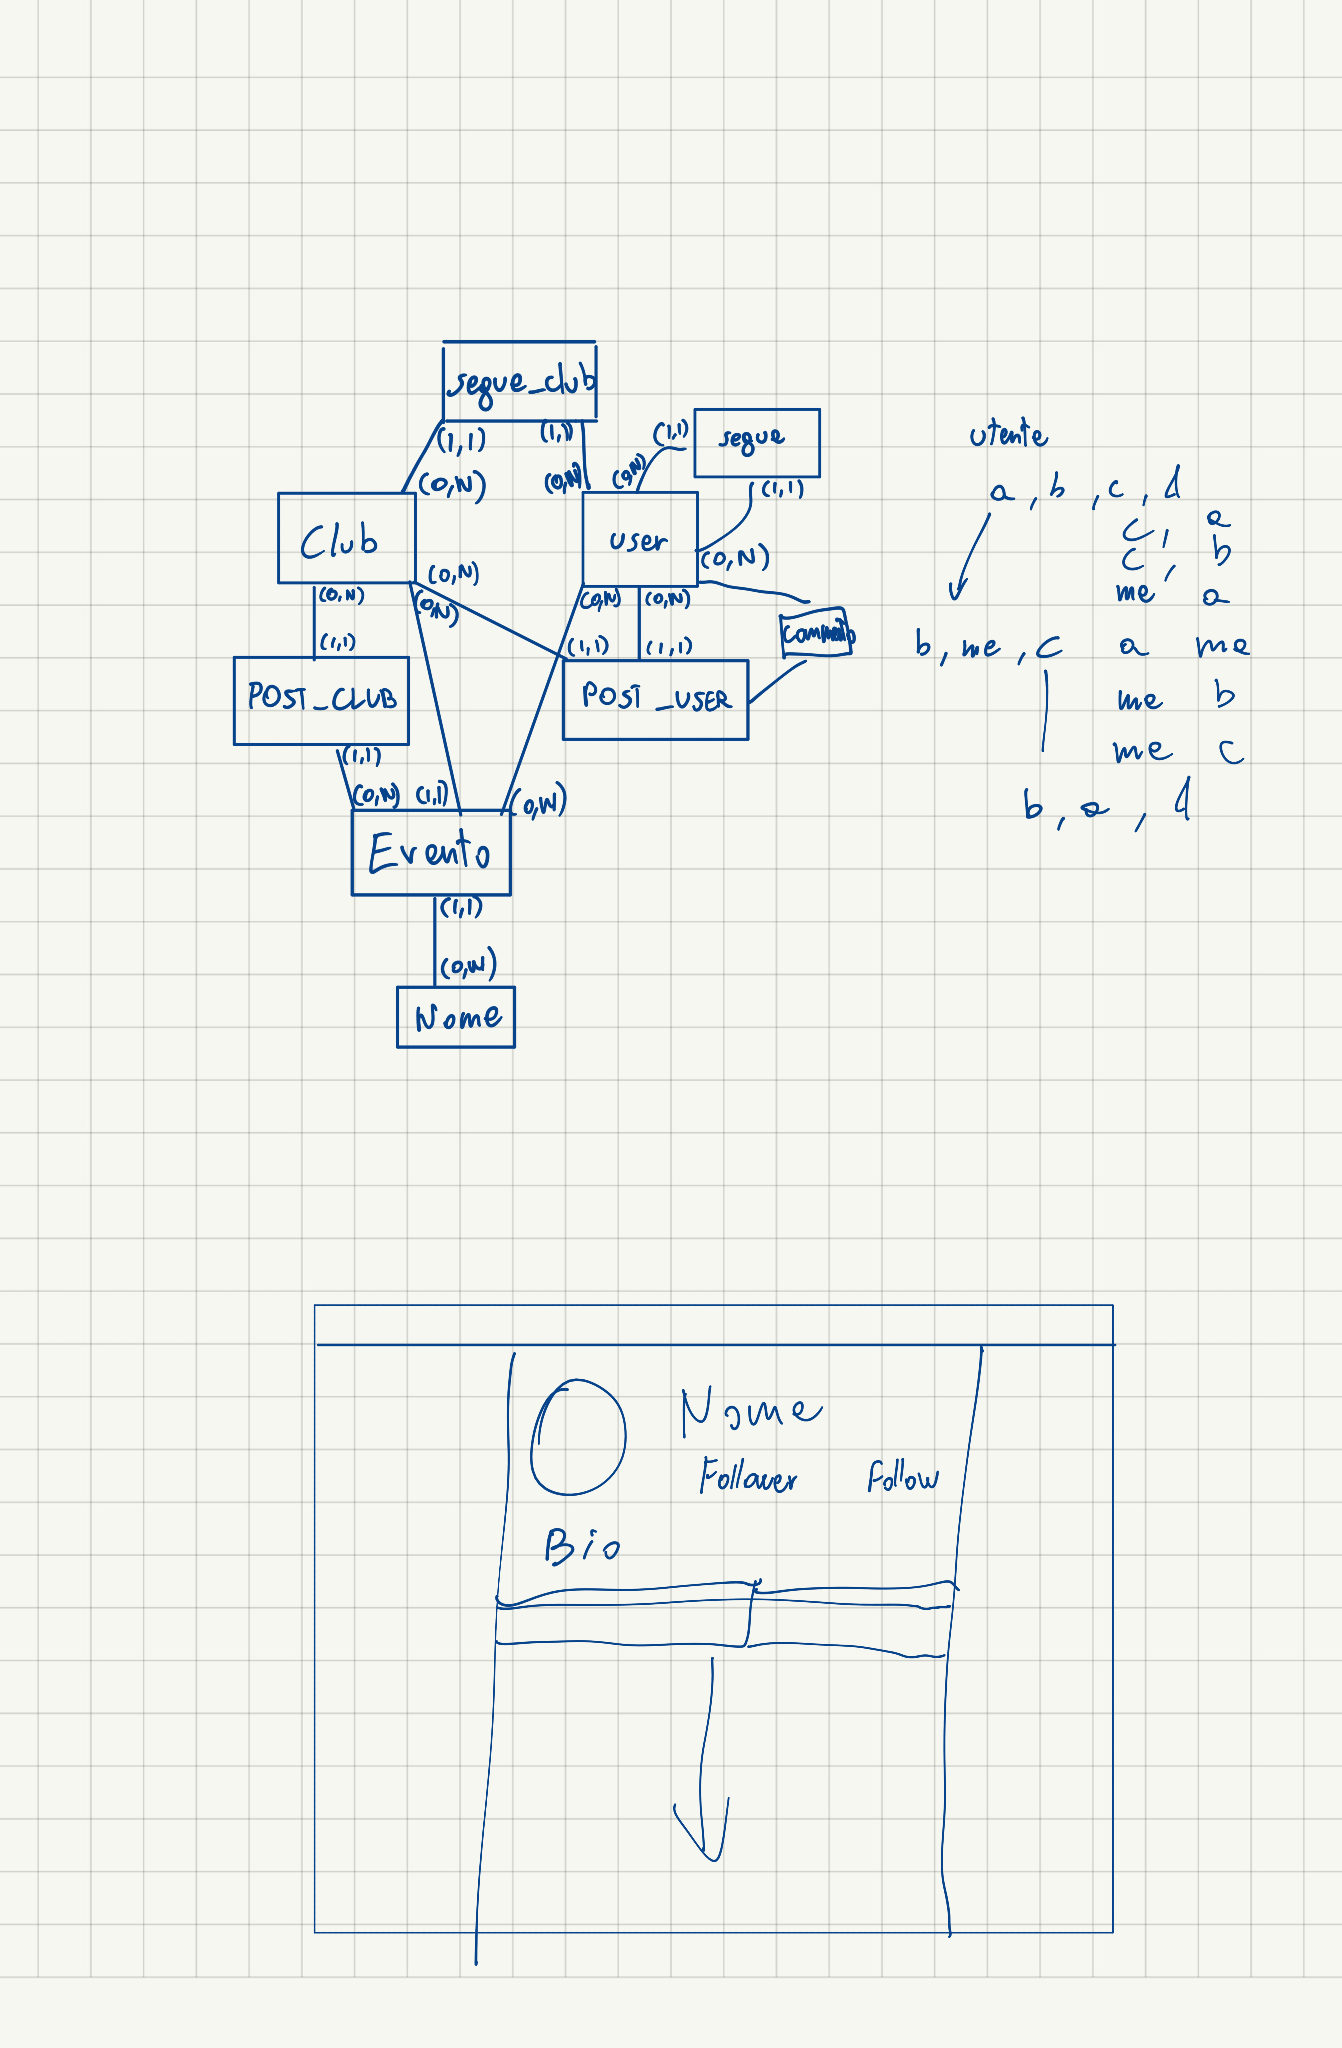 segue_club
(1,1)
(1,1)
(0,N)
(0,N)
(1,1)
segue
(0,N)
(1,1)
Club
user
(0,N)
(0,N)
(0,N)
(0,N)
(0,N)
(0,N)
(1,1)
(1,1)
(1,1)
POST_CLUB
POST_USER
(1,1)
(0,N)
(1,1)
(0,N)
Evento
(1,1)
(0,N)
Nome
utente
a, b, c, d
c, a
c, b
me, a
b, me, c
a me
me b
me c
b, a, d
Nome
Follower Follow
Bio